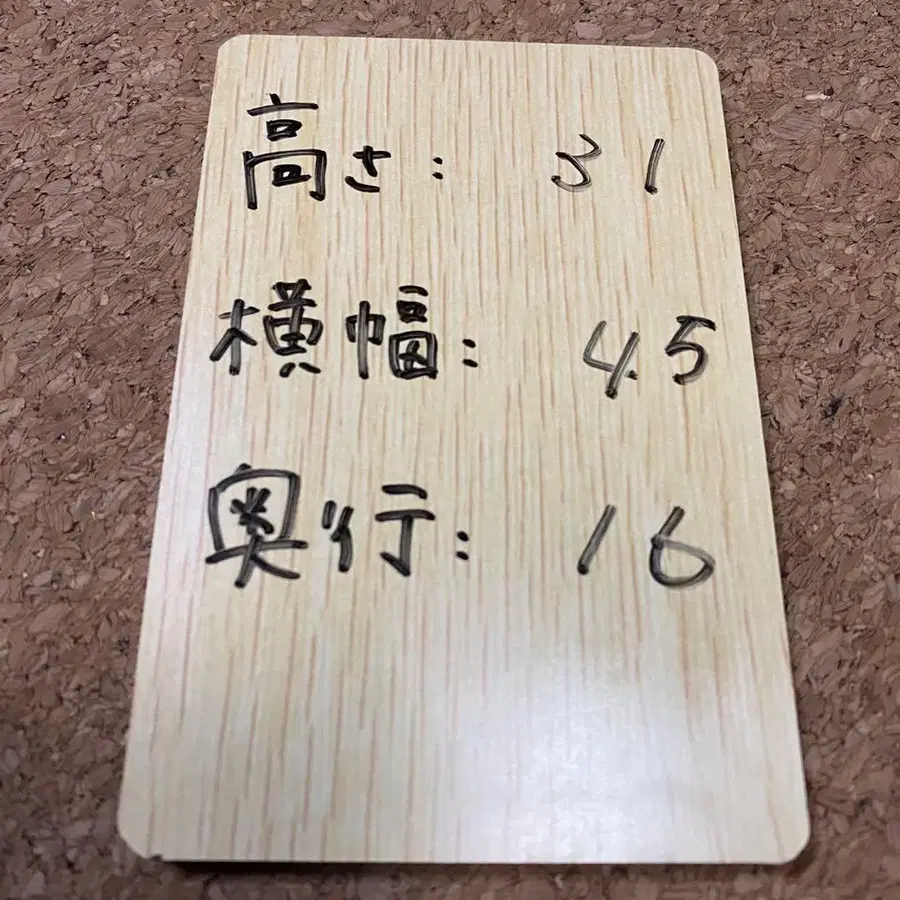 高さ: 31
横幅: 45
奥行: 16